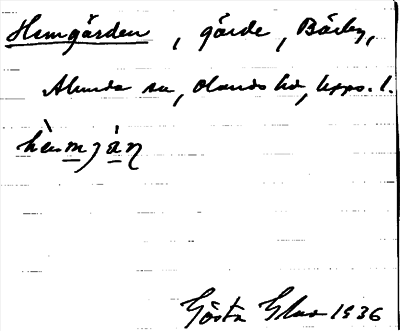 Hemgården, gärde, Bärby,
Alunda sn, Olands hd, Upps. l.
Gösta Elas 1936